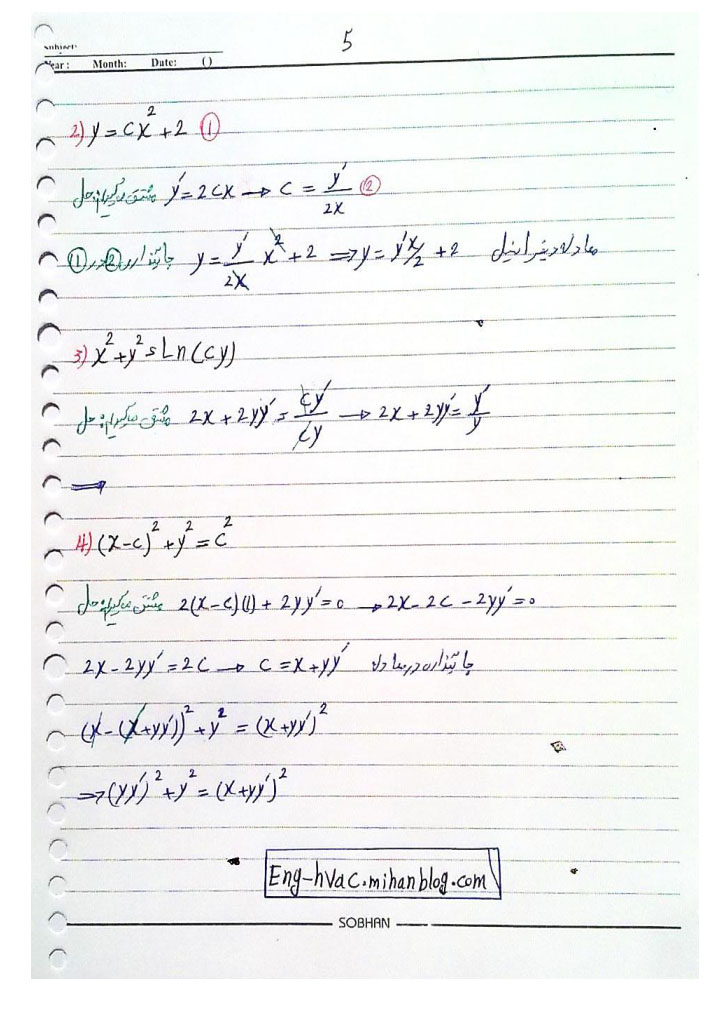 5
Subject:
Year: Month: Date: ()
2) y = cx² + 2 ①
حل: مشتق میگیریم y′ = 2cx → c = y′/2x ②
جایگذاری ② در ① y = y′/2x x² + 2 ⇒ y = y′x/2 + 2 معادله دیفرانسیل
3) x² + y² = Ln(cy)
حل: مشتق میگیریم 2x + 2yy′ = cy′/cy → 2x + 2yy′ = y′/y
⇒
4) (x-c)² + y² = c²
حل: مشتق میگیریم 2(x-c)(1) + 2yy′ = 0 → 2x - 2c - 2yy′ = 0
2x - 2yy′ = 2c → c = x + yy′ جایگذاری در معادله
(x - (x + yy′))² + y² = (x + yy′)²
⇒ (yy′)² + y² = (x + yy′)²
Eng-hvac.mihanblog.com
SOBHAN